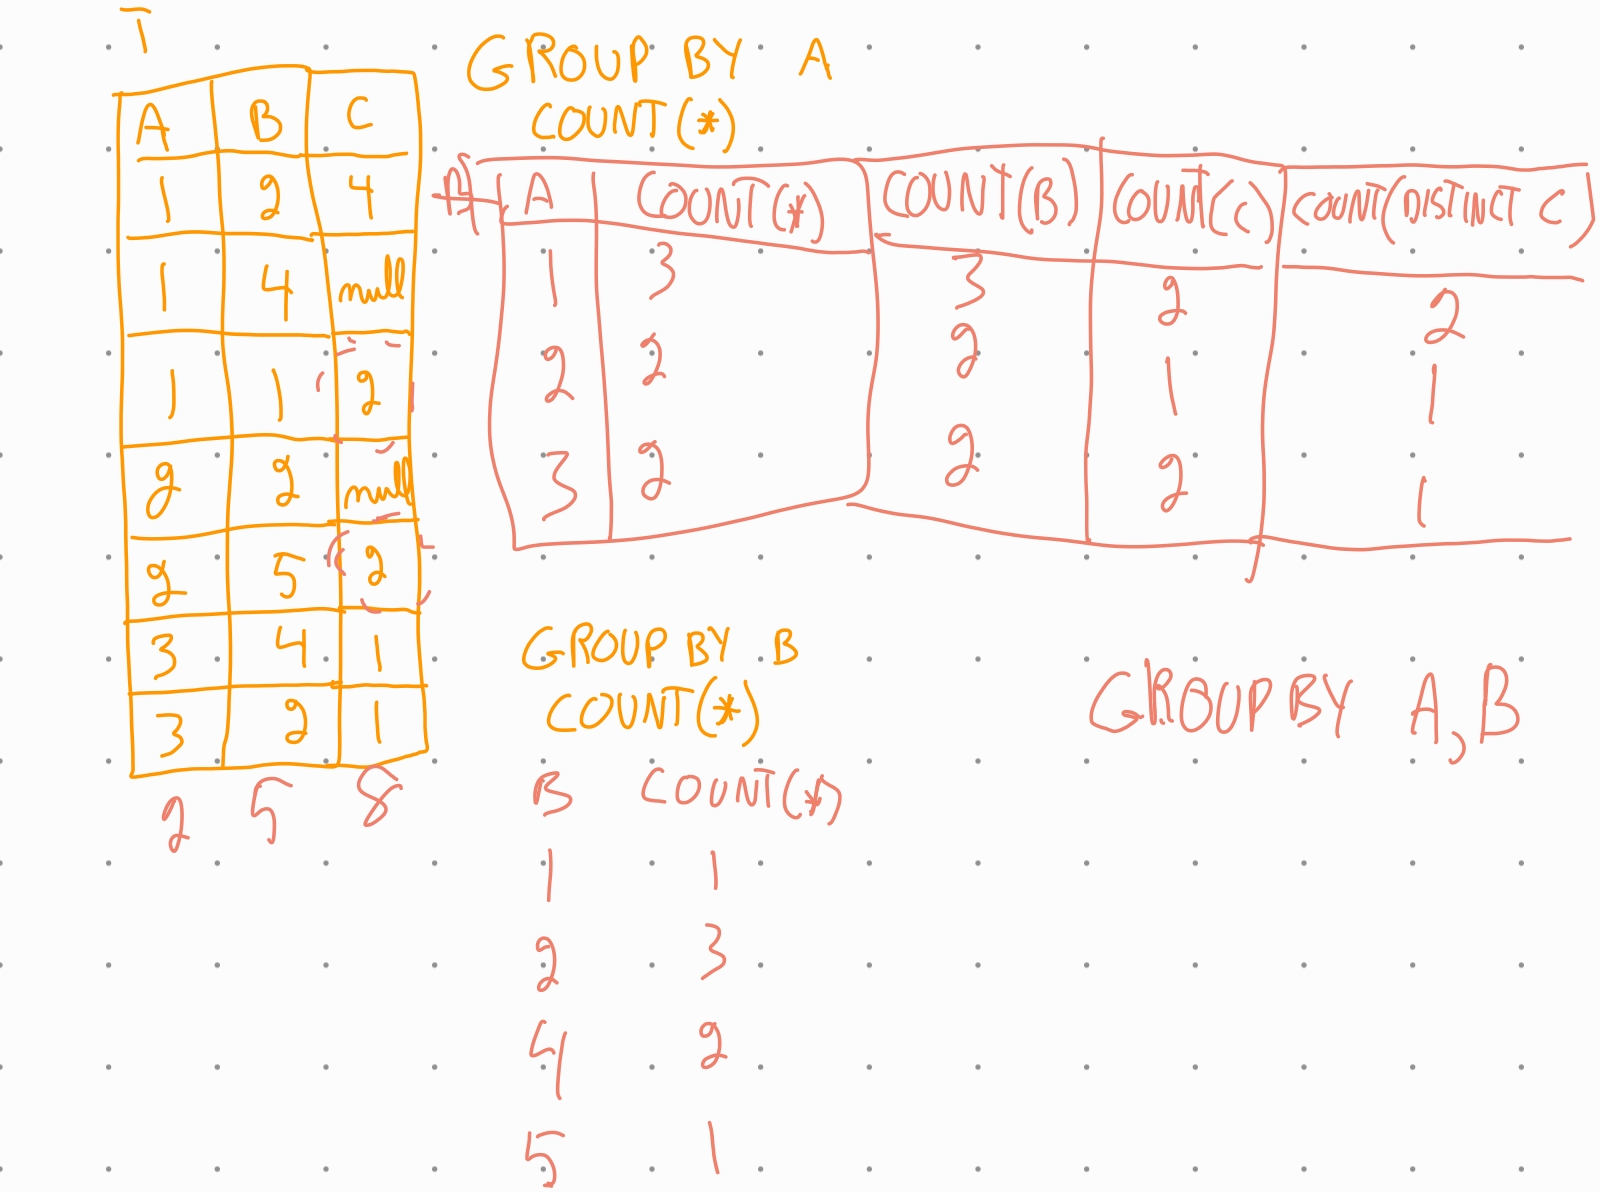 T
A B C
1 2 4
1 4 null
1 1 2
2 2 null
2 5 2
3 4 1
3 2 1
2 5 8
GROUP BY A
COUNT(*)
A COUNT(*) COUNT(B) COUNT(C) COUNT(DISTINCT C)
1 3 3 2 2
2 2 2 1 1
3 2 2 2 1
GROUP BY B
COUNT(*)
B COUNT(*)
1 1
2 3
4 2
5 1
GROUP BY A,B